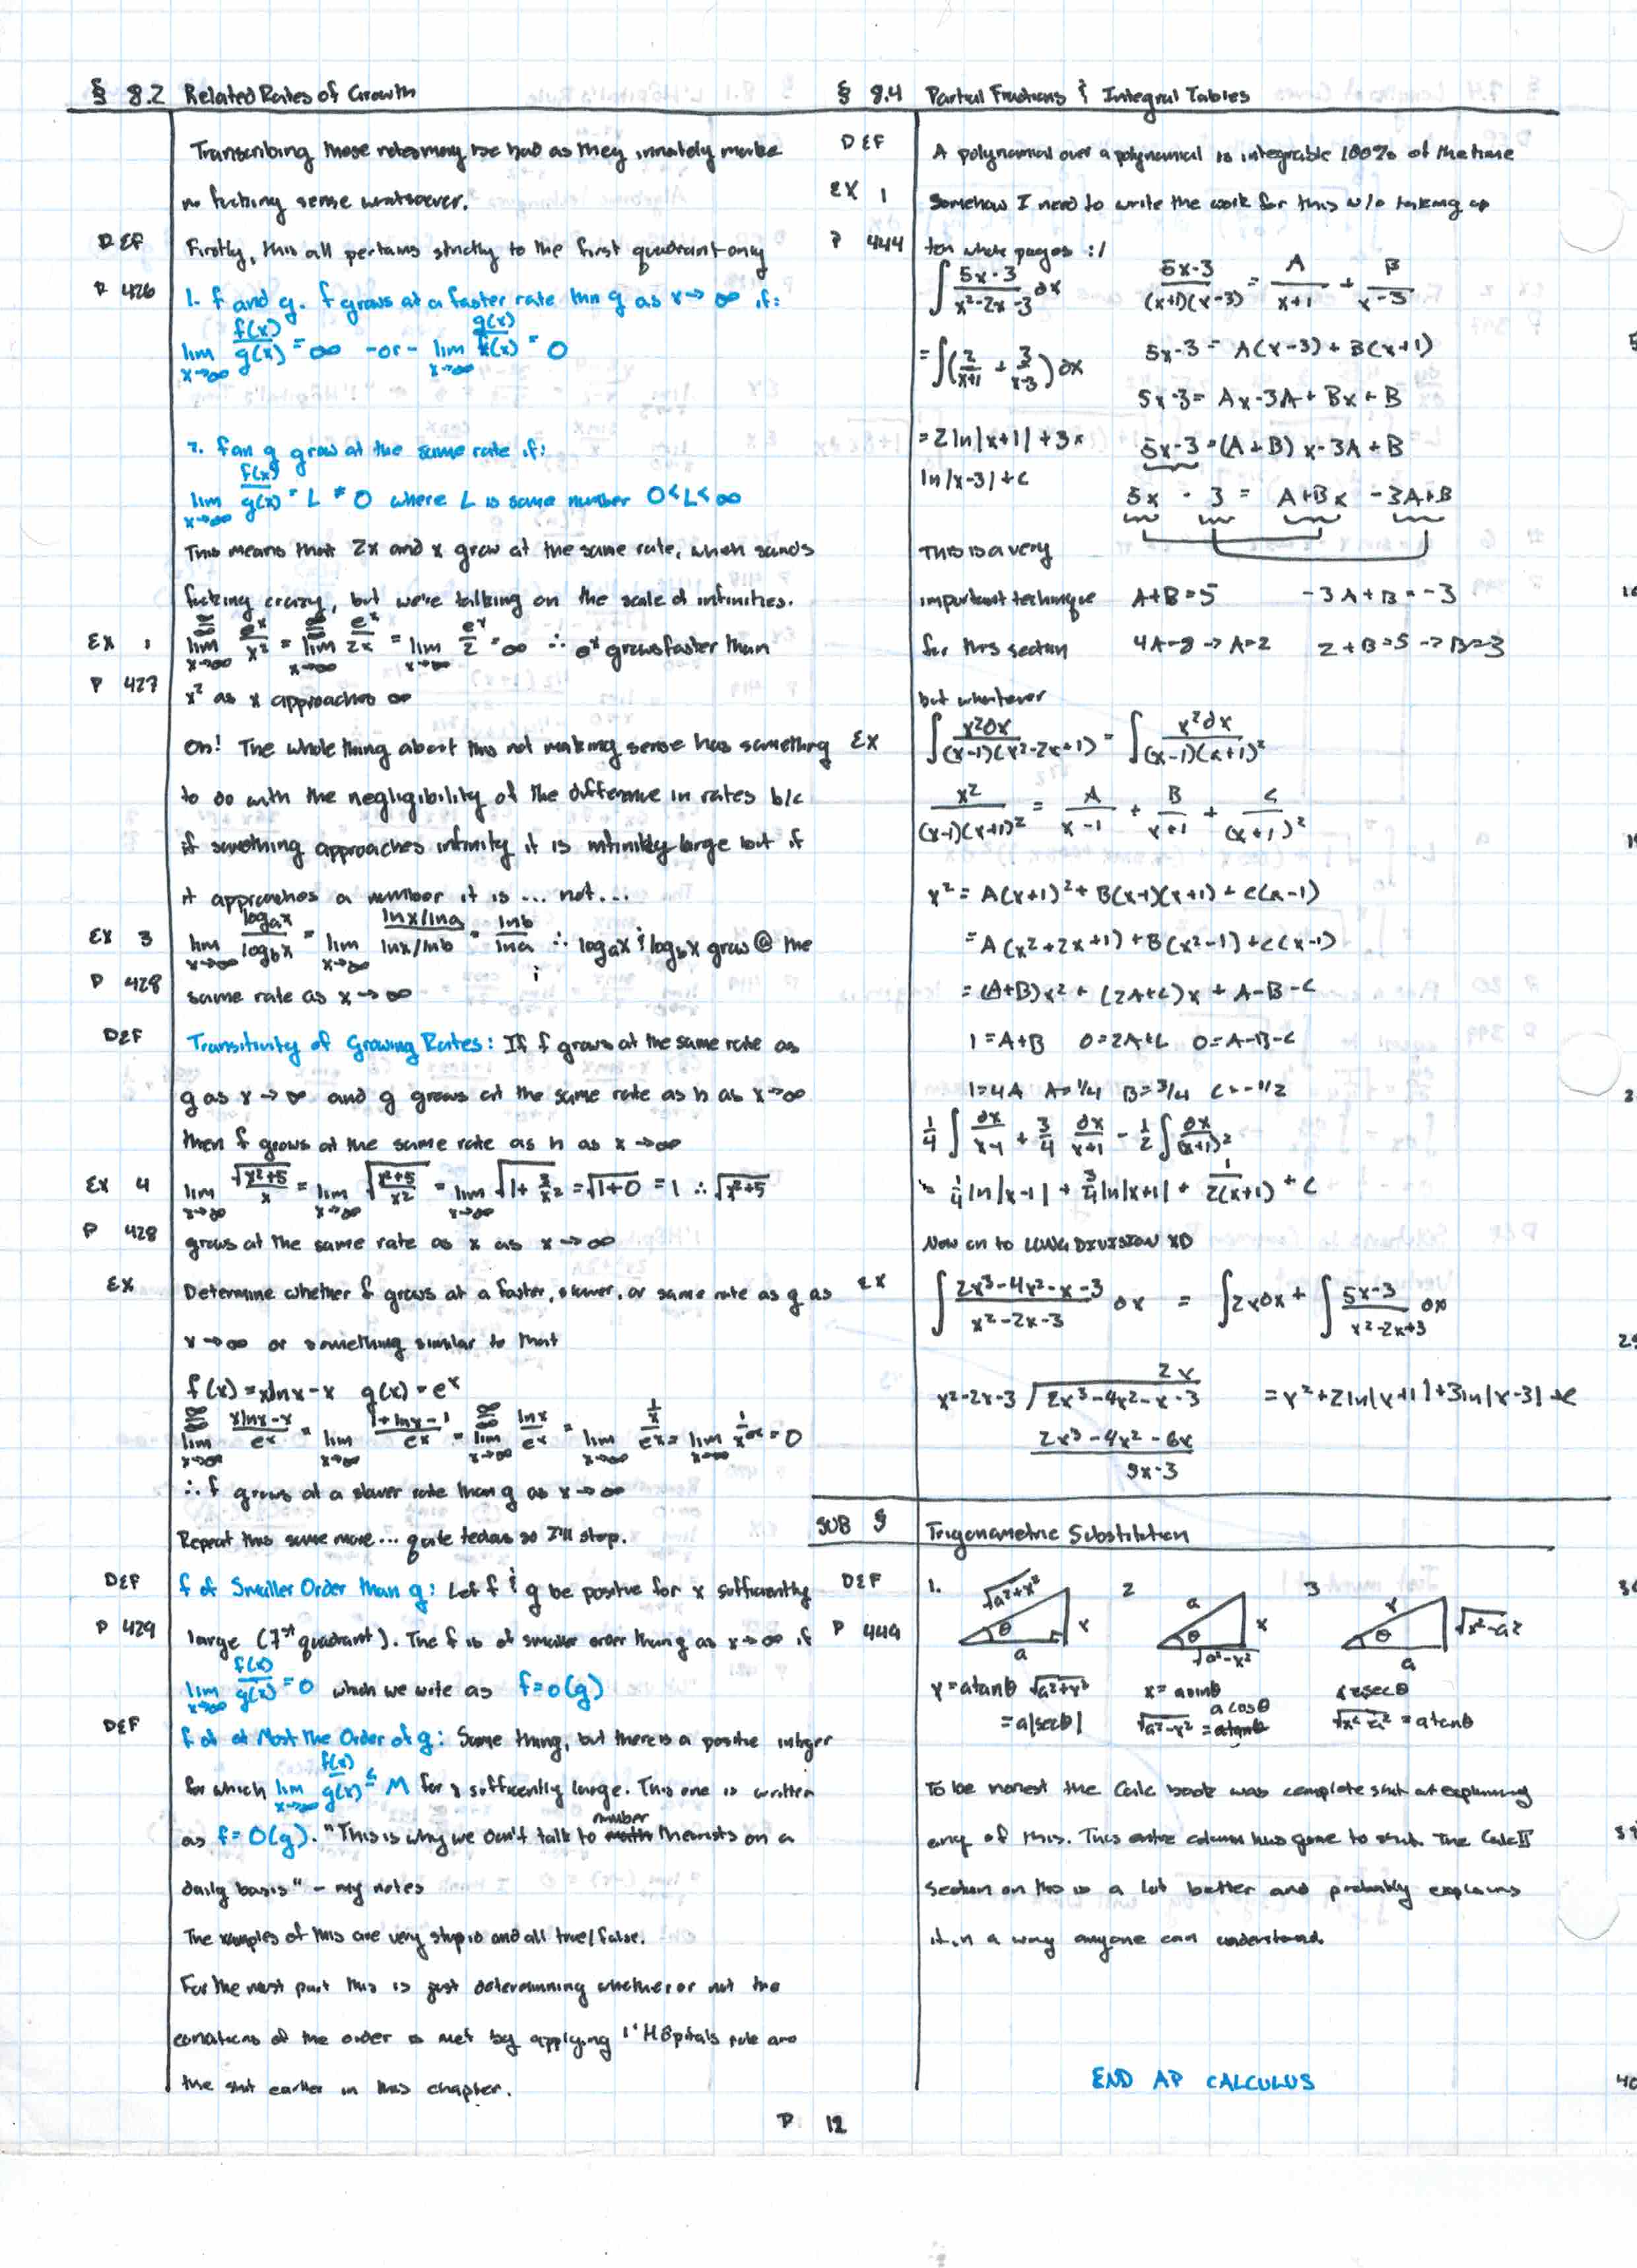 § 8.2 Related Rates of Growth
Transcribing these notes may be bad as they innately make
no fucking sense whatsoever.
DEF Firstly, this all pertains strictly to the first quadrant only
P 426 1. f and g. f grows at a faster rate than g as x→∞ if:
lim x→∞ f(x)/g(x) = ∞ -or- lim x→∞ g(x)/f(x) = 0
2. f an g grow at the same rate if:
lim x→∞ f(x)/g(x) = L ≠ 0 where L is some number 0<L<∞
This means that 2x and x grow at the same rate, which sounds
fucking crazy, but we're talking on the scale of infinities.
EX 1 ∞/∞ lim x→∞ e^x/x² = ∞/∞ lim x→∞ e^x/2x = lim x→∞ e^x/2 = ∞ ∴ e^x grows faster than
P 427 x² as x approaches ∞
Oh! The whole thing about this not making sense has something
to do with the negligibility of the difference in rates b/c
if something approaches infinity it is infinitely large but if
it approaches a number it is ... not...
EX 3 lim x→∞ log_a x/log_b x = lim x→∞ (lnx/lna)/(lnx/lnb) = lnb/lna ∴ log_a x & log_b x grow @ the
P 428 same rate as x→∞
DEF Transitivity of Growing Rates: If f grows at the same rate as
g as x→∞ and g grows at the same rate as h as x→∞
then f grows at the same rate as h as x→∞
EX 4 lim x→∞ √(x²+5)/x = lim x→∞ √((x²+5)/x²) = lim x→∞ √(1+5/x²) = √(1+0) = 1 ∴ √(x²+5)
P 428 grows at the same rate as x as x→∞
EX Determine whether f grows at a faster, slower, or same rate as g as
x→∞ or something similar to that
f(x)=xlnx-x g(x)=e^x
∞/∞ lim x→∞ (xlnx-x)/e^x = lim x→∞ (1+lnx-1)/e^x = ∞/∞ lim x→∞ lnx/e^x = lim x→∞ (1/x)/e^x = lim x→∞ 1/xe^x = 0
∴ f grows at a slower rate than g as x→∞
Repeat this some more... quite tedious so I'll stop.
DEF f of Smaller Order than g: Let f & g be positive for x sufficiently
P 429 large (1st quadrant). The f is of smaller order than g as x→∞ if
lim x→∞ f(x)/g(x) = 0 which we write as f=o(g)
DEF f of at Most the Order of g: Same thing, but there is a positive integer
for which lim x→∞ f(x)/g(x) ≤ M for x sufficently large. This one is written
as f=O(g). "This is why we don't talk to number theorists on a
daily basis" - my notes
The xamples of this are very stupid and all true/false.
For the most part this is just determining whether or not the
conditions of the order is met by applying l'Hôpital's rule and
the shit earlier in this chapter.
§ 8.4 Partial Fractions & Integral Tables
DEF A polynomial over a polynomial is integrable 100% of the time
EX 1 Somehow I need to write the work for this w/o taking up
P 444 ten whole pages :/
∫ (5x-3)/(x²-2x-3) dx (5x-3)/((x+1)(x-3)) = A/(x+1) + B/(x-3)
= ∫(2/(x+1) + 3/(x-3)) dx 5x-3 = A(x-3)+B(x+1)
5x-3 = Ax-3A+Bx+B
= 2ln|x+1| + 3× 5x-3 = (A+B)x-3A+B
ln|x-3|+c 5x - 3 = A+Bx -3A+B
This is a very
important technique A+B=5 -3A+B=-3
for this section 4A=8 → A=2 2+B=5 → B=3
but whatever
EX ∫ x²dx/((x-1)(x²-2x+1)) = ∫ x²dx/((x-1)(x+1)²)
x²/((x-1)(x+1)²) = A/(x-1) + B/(x+1) + C/(x+1)²
x² = A(x+1)² + B(x-1)(x+1) + C(x-1)
= A(x²+2x+1) + B(x²-1) + C(x-1)
= (A+B)x² + (2A+C)x + A-B-C
1=A+B 0=2A+C 0=A-B-C
1=4A A=1/4 B=3/4 C=-1/2
1/4 ∫ dx/(x-1) + 3/4 dx/(x+1) - 1/2 ∫ dx/(x+1)²
= 1/4 ln|x-1| + 3/4 ln|x+1| + 1/(2(x+1)) + C
Now on to LONG DIVISION XD
EX ∫ (2x³-4x²-x-3)/(x²-2x-3) dx = ∫2xdx + ∫ (5x-3)/(x²-2x+3) dx
2x
x²-2x-3 √ 2x³-4x²-x-3 = x²+2ln|x+1|+3ln|x-3|+c
2x³-4x²-6x
5x-3
SUB § Trigonometric Substitution
DEF 1. √(a²+x²) θ x a 2 a θ x √(a²-x²) 3 x θ √(x²-a²) a
P 444
x=atanθ √(a²+x²) x=asinθ x=asecθ
=a|secθ| √(a²-x²) = acosθ √(x²-a²) = atanθ
To be honest the Calc book was complete shit at explaining
any of this. This entire column has gone to shit. The Calc II
section on this is a lot better and probably explains
it in a way anyone can understand.
END AP CALCULUS
P 12